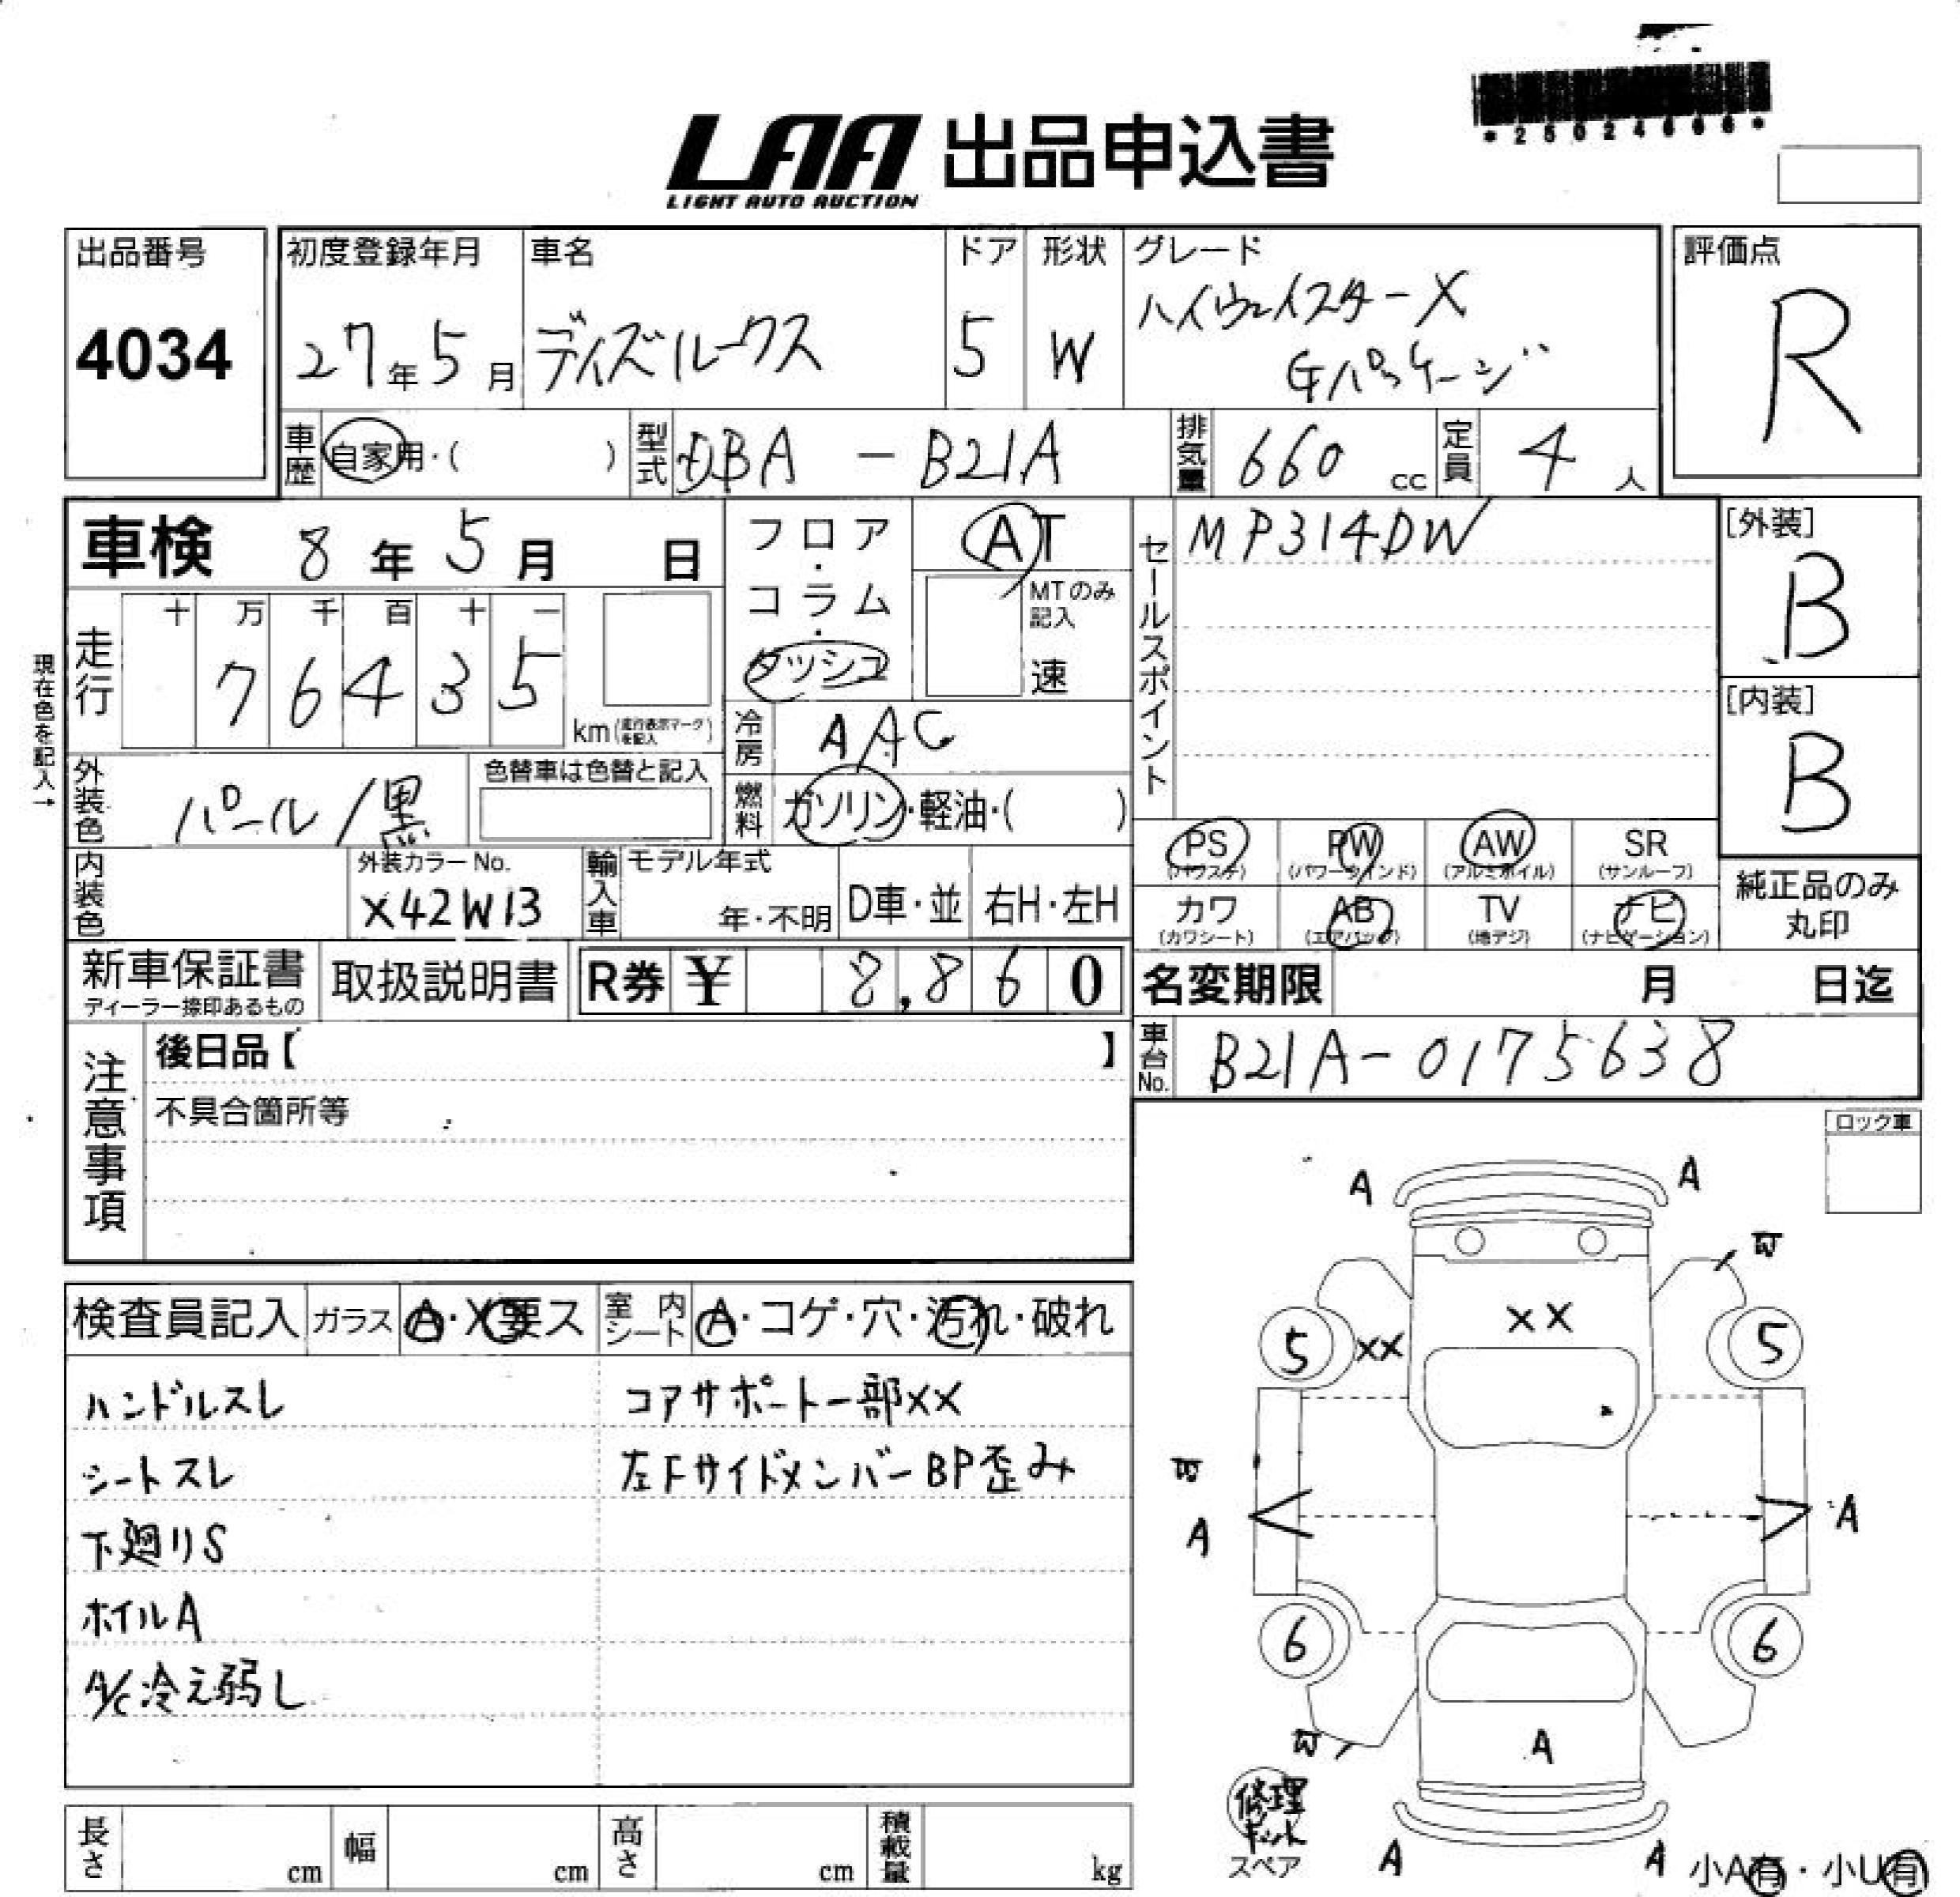 LAA 出品申込書
LIGHT AUTO AUCTION
出品番号
4034
初度登録年月
27年5月
車名
デイズルークス
ドア
5
形状
W
グレード
ハイウェイスターX
Gパッケージ
評価点
R
車歴
自家用・( )
型式
DBA - B21A
排気量
660 cc
定員
4 人
車検 8年5月 日
フロア・コラム・ダッシュ
AT
MTのみ記入
速
セールスポイント
MP314DW
[外装]
B
[内装]
B
現在色を記入→
走行
十 万 千 百 十 一
7 6 4 3 5
km(走行表示マークを記入)
冷房
AAC
外装色
パール/黒
色替車は色替と記入
燃料
ガソリン・軽油・( )
PS
(パワステ)
PW
(パワーウインド)
AW
(アルミホイル)
SR
(サンルーフ)
カワ
(カワシート)
AB
(エアバッグ)
TV
(地デジ)
ナビ
(ナビゲーション)
純正品のみ
丸印
内装色
外装カラーNo.
X42W13
輸入車
モデル年式
年・不明
D車・並
右H・左H
新車保証書
ディーラー捺印あるもの
取扱説明書
R券 ¥ 8,860
名変期限 月 日迄
車台No.
B21A-0175638
注意事項
後日品【 】
不具合箇所等
ロック車
検査員記入
ガラス
A・X要ス
室内シート
A・コゲ・穴・汚れ・破れ
ハンドルスレ
コアサポート一部XX
シートスレ
左FサイドメンバーBP歪み
下廻りS
ホイルA
A/C冷え弱し
A
A
W
XX
5
XX
5
A
A
6
6
W
A
修理
キット
スペア
A
A
小A有・小U有
長さ
cm
幅
cm
高さ
cm
積載量
kg